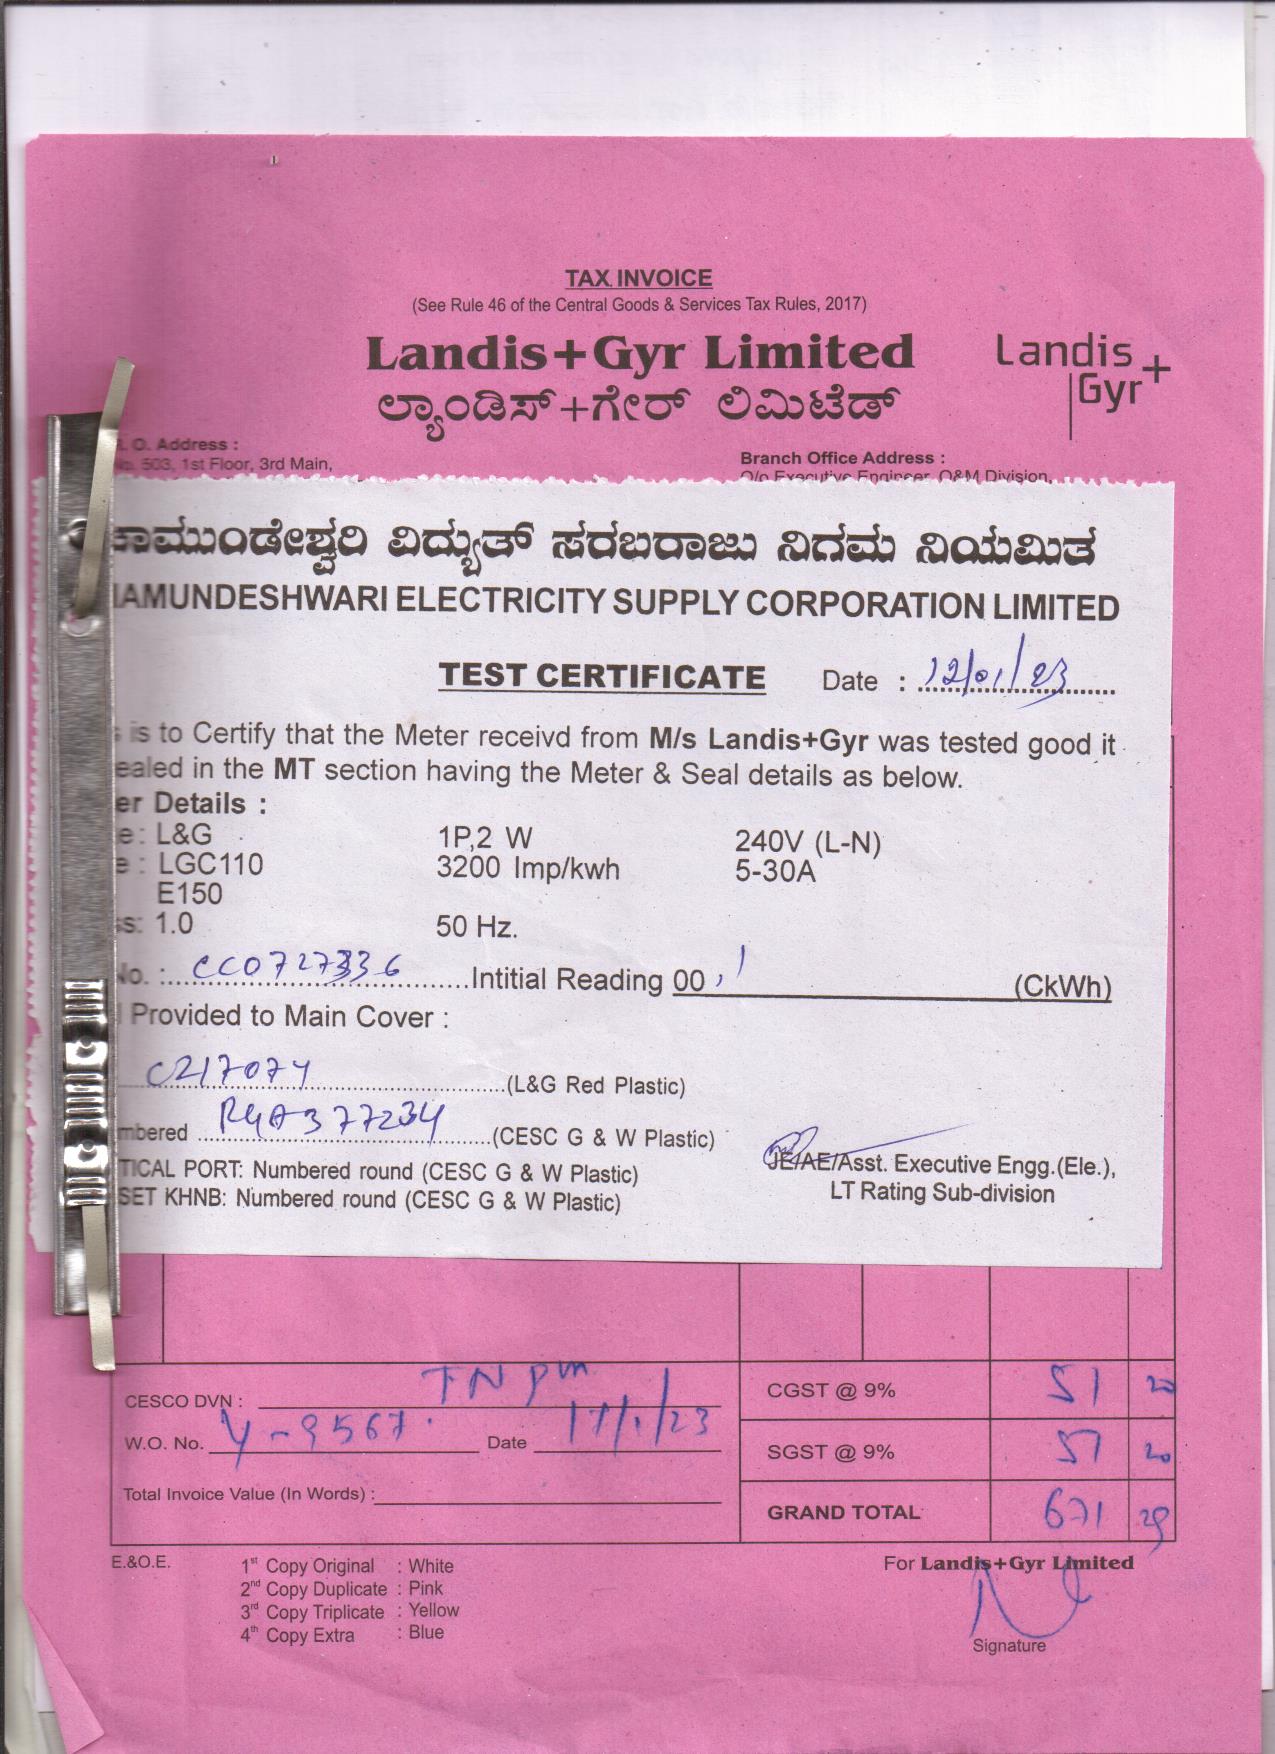 TAX INVOICE
(See Rule 46 of the Central Goods & Services Tax Rules, 2017)
Landis+Gyr Limited
ಲ್ಯಾಂಡಿಸ್+ಗೇರ್ ಲಿಮಿಟೆಡ್
Landis
Gyr+
O. Address :
No. 503, 1st Floor, 3rd Main,
Branch Office Address :
O/o Executive Engineer, O&M Division,
ಚಾಮುಂಡೇಶ್ವರಿ ವಿದ್ಯುತ್ ಸರಬರಾಜು ನಿಗಮ ನಿಯಮಿತ
AMUNDESHWARI ELECTRICITY SUPPLY CORPORATION LIMITED
TEST CERTIFICATE Date : 12/01/23
is to Certify that the Meter receivd from M/s Landis+Gyr was tested good it
ealed in the MT section having the Meter & Seal details as below.
er Details :
e : L&G 1P,2 W 240V (L-N)
e : LGC110 3200 Imp/kwh 5-30A
E150
ss: 1.0 50 Hz.
No. : CC0727336 Intitial Reading 00,1 (CkWh)
Provided to Main Cover :
C217074 (L&G Red Plastic)
mbered 377234 (CESC G & W Plastic)
TICAL PORT: Numbered round (CESC G & W Plastic)
SET KHNB: Numbered round (CESC G & W Plastic)
JE/AE/Asst. Executive Engg.(Ele.),
LT Rating Sub-division
CESCO DVN : TNpm
W.O. No. Y-9567. Date 17/1/23
Total Invoice Value (In Words) :
CGST @ 9% 51 20
SGST @ 9% 51 20
GRAND TOTAL 671 29
E.&O.E.
1st Copy Original : White
2nd Copy Duplicate : Pink
3rd Copy Triplicate : Yellow
4th Copy Extra : Blue
For Landis+Gyr Limited
Signature